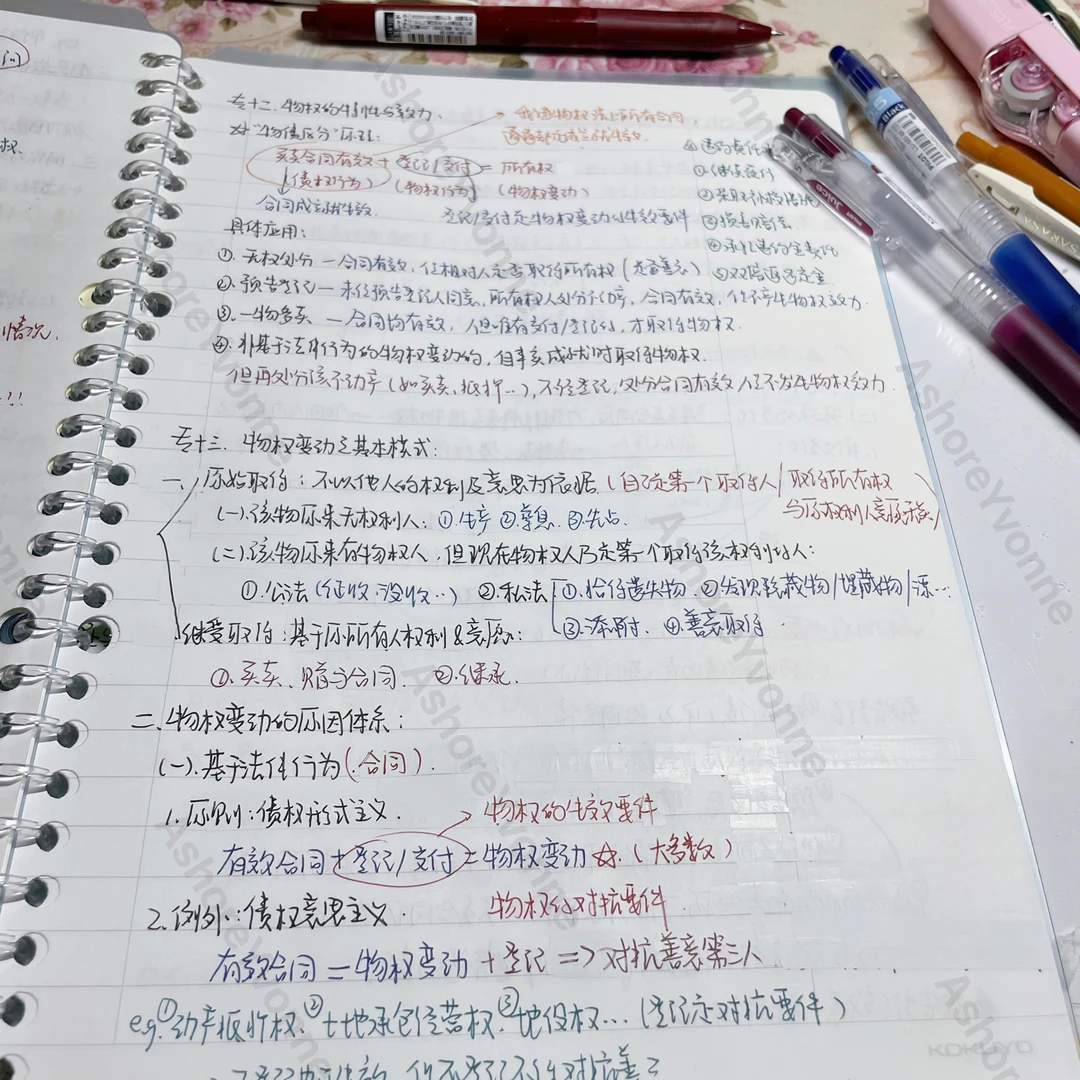 专十二.物权的特性与效力.
→我国物权法上所有合同
☆"物债区分"原理:
買卖合同有效+登记/交付=所有权
(债权行为) (物权行为) (物权变动)
合同成立时生效.
登记/交付是物权变动的生效要件
①继续履行
②采取补救措施
③损害赔偿
⑤双倍返还定金
具体应用:
①.无权处分—合同有效,但相对人是否取得所有权(是否善意)
②.预告登记—未经预告登记人同意,所有权人处分不动产,合同有效,但不产生物权效力.
③.一物多卖—合同均有效,但唯有交付/登记的,才取得物权.
④.非基于法律行为的物权变动的,自事实成就时取得物权.
但再处分该不动产(如买卖、抵押…),不经登记,处分合同有效但不发生物权效力.
专十三.物权变动之基本模式:
一、原始取得:不以他人的权利及意思为依据.(自己是第一个取得人/取得所有权
与原权利人意愿无关)
(一).该物原来无权利人:①.生产 ②.孳息.③.先占.
(二).该物原来有物权人,但现在物权人乃是第一个取得该权利的人:
①.公法(征收.没收..) ②.私法 ①.拾得遗失物.②.发现隐藏物/埋藏物/漂…
③.添附. ④.善意取得
继受取得:基于原所有人权利&意愿:
①.买卖、赠与合同. ②.继承.
二.物权变动的原因体系:
(一).基于法律行为(.合同).
1.原则:债权形式主义. →物权的生效要件
有效合同+登记/交付=物权变动☆.(大多数)
2.例外:债权意思主义. 物权的对抗要件.
有效合同=物权变动+登记=>对抗善意第三人
eg.①动产抵押权.②土地承包经营权.③地役权…(登记是对抗要件)
KOKUYO
Black
Juice
SARASA
AshoreYvonne